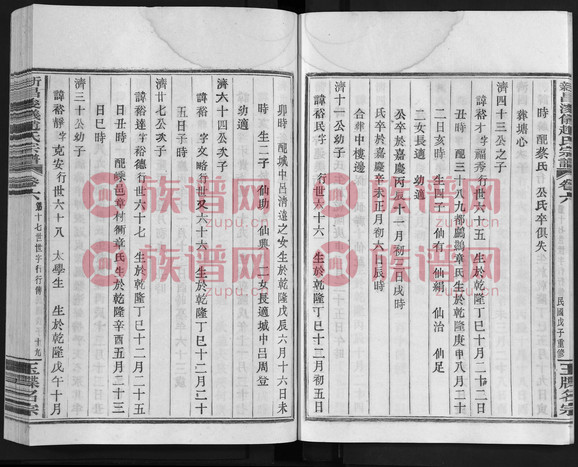 時 配蔡氏 公氏卒俱失
葬塘心
濟四十三公之子
諱裕才字福秀行世六十五 生於乾隆丁巳十二月二十二日
丑時 配三十九都鸕鷀章氏生於乾隆庚申八月二十
二日亥時 生四子 仙有 仙絹 仙治 仙足
二女長適 幼適
公卒於嘉慶丙辰十一月初三日戌時
氏卒於嘉慶辛未正月初六日辰時
合葬中樓邊
濟一十一公幼子
諱裕民字 行世六十六 生於乾隆丁巳十二月初五日
新昌渓儀趙氏宗譜
卷六
民國戊子重修
玉牒名宗
卯時 配城中呂清遠之女生於乾隆戊辰六月十六日未
時 生二子 仙助 仙興 二女長適城中呂周登
幼適
濟六十四公次子
諱裕 字文略行世又六十六 生於乾隆丁巳十二月二十
五日子時
濟廿七公次子
諱裕達字裕德行世六十七 生於乾隆丁巳十二月二十五
日丑時 配嵊邑章村衝章氏生於乾隆辛酉五月二十三
日巳時
濟三十公幼子
諱裕靜字克安行世六十八 太學生 生於乾隆戊午十月
新昌渓儀趙氏宗譜
卷六
第十七世世字行行傳
十九
玉牒名宗
族谱网
zupu.cn
族谱网
zupu.cn
族谱网
zupu.cn
族谱网
zupu.cn